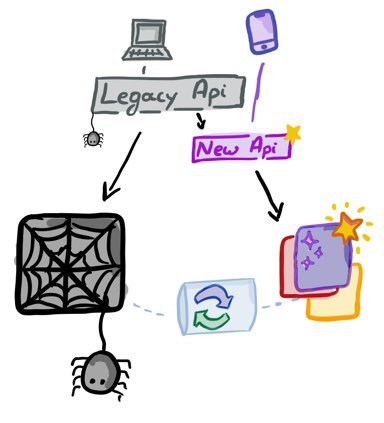 Legacy Api
New Api